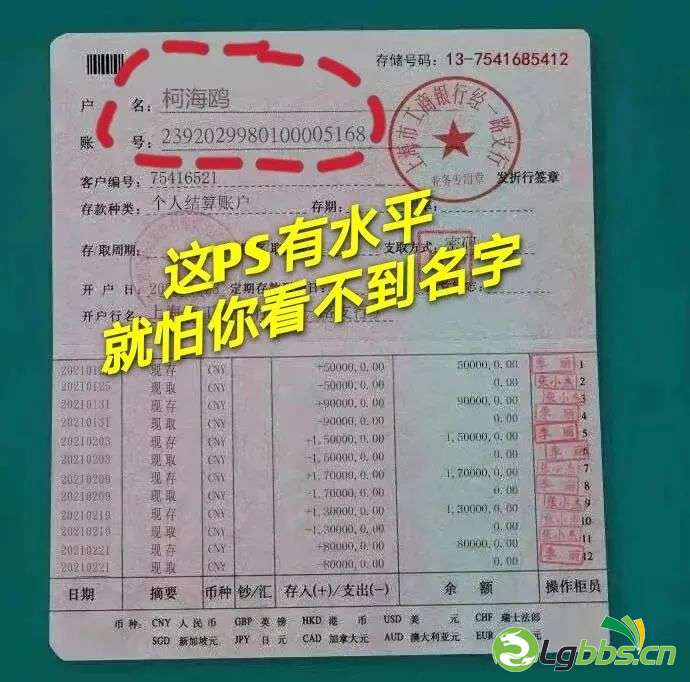 存储号码: 13-7541685412
户 名: 柯海鸥
账 号: 2392029980100005168
上海市工商银行经一路支行
业务专用章
发折行签章
客户编号: 75416521
存款种类: 个人结算账户 存期:
存/取周期: 支取方式: 密码
开 户 日: 定期存款
开户行名: 上海
这PS有水平
就怕你看不到名字
现存 CNY +50000,0.00 50000,0.00 李丽 1
20210125 现取 CNY -50000,0.00 0.00 张小杰 2
20210131 现存 CNY +90000,0.00 90000,0.00 张小杰 3
20210131 现取 CNY -90000,0.00 0.00 李丽 4
20210203 现存 CNY +1,50000,0.00 1,50000,0.00 李丽 5
20210203 现取 CNY -1,50000,0.00 0.00 李丽 6
20210209 现存 CNY +1,70000,0.00 1,70000,0.00 张小杰 7
20210209 现取 CNY -1,70000,0.00 0.00 李丽 8
20210219 现存 CNY +1,30000,0.00 1,30000,0.00 张小杰 9
20210219 现取 CNY -1,30000,0.00 0.00 张小杰 10
20210221 现存 CNY +80000,0.00 80000,0.00 张小杰 11
20210221 现取 CNY -80000,0.00 0.00 李丽 12
日期 摘要 币种 钞/汇 存入(+)/支出(-) 余 额 操作柜员
币种: CNY 人民币 GBP 英镑 HKD 港币 USD 美元 CHF 瑞士法郎
SGD 新加坡元 JPY 日元 CAD 加拿大元 AUD 澳大利亚元 EUR
Lgbbs.cn